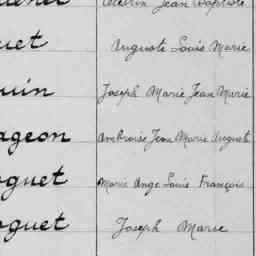 Jean Baptiste
uet Auguste Louis Marie
uin Joseph Marie Jean Marie
ageon Ambroise Jean Marie August
oguet Marie Ange Louis François
oguet Joseph Marie